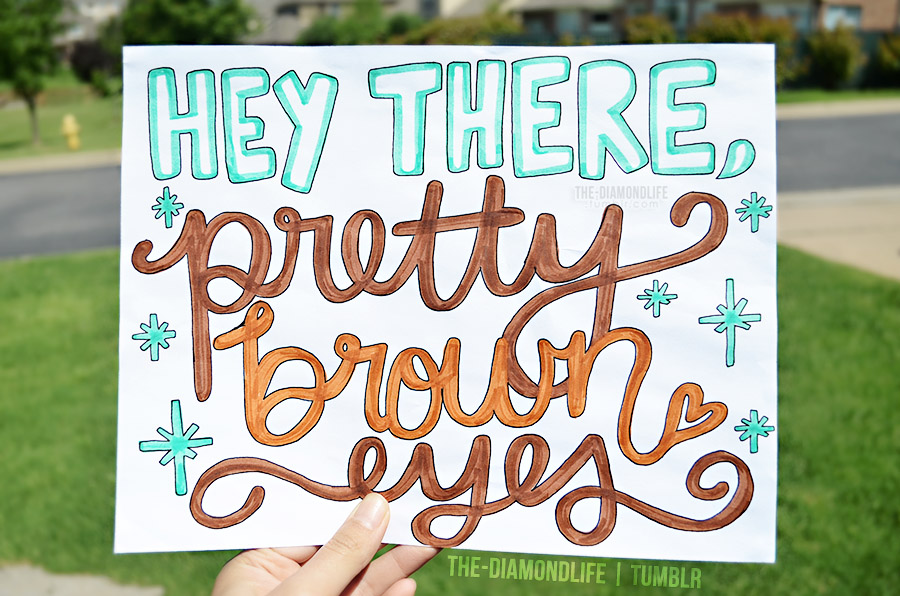 HEY THERE,
THE-DIAMONDLIFE
tumblr.com
pretty
brown
eyes
THE-DIAMONDLIFE | TUMBLR